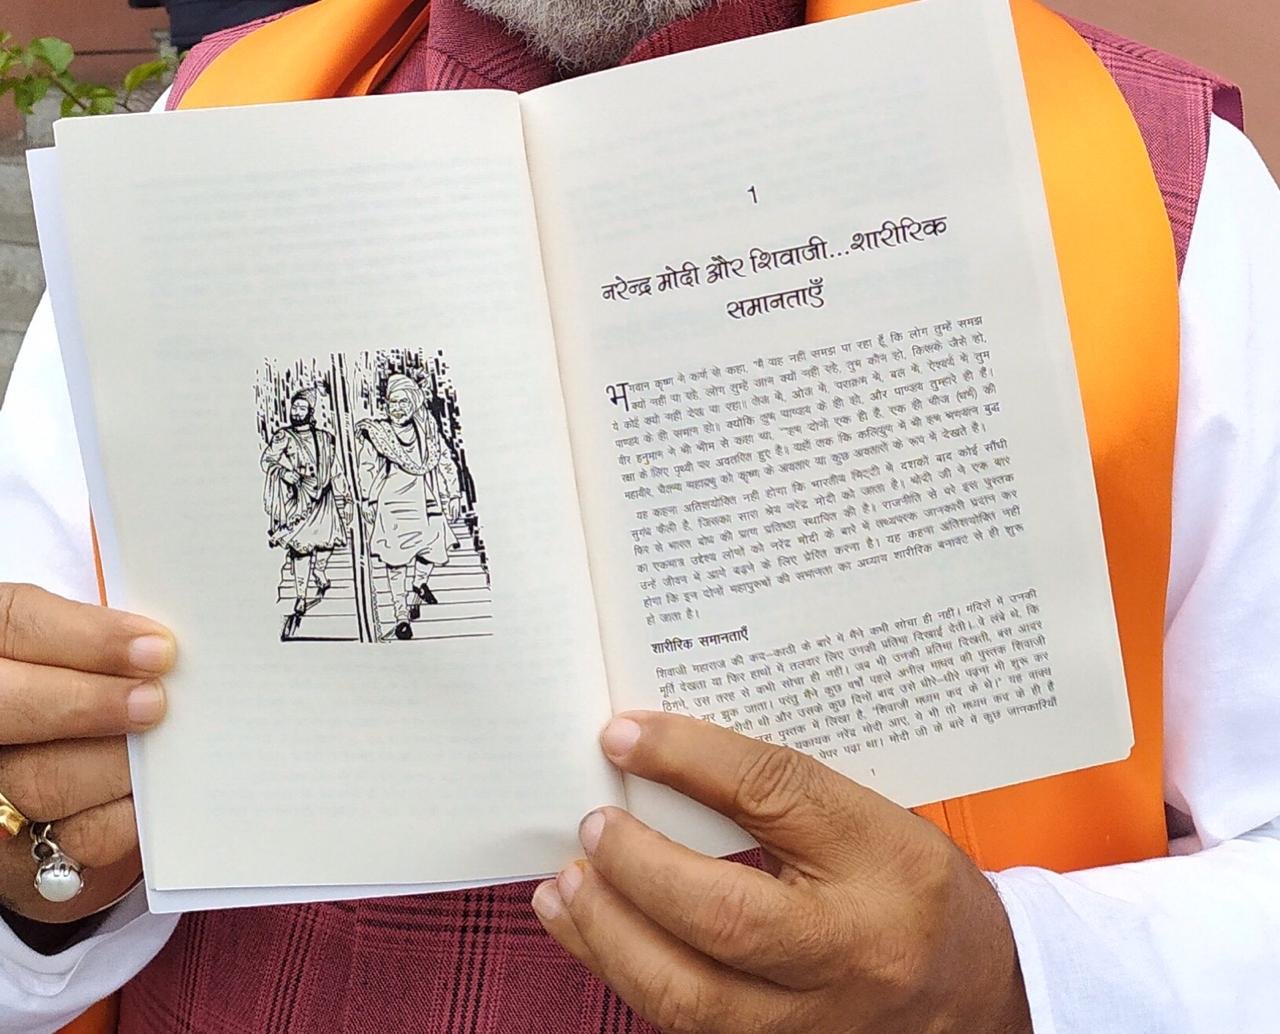 1
नरेन्द्र मोदी और शिवाजी...शारीरिक
समानताएँ
भगवान कृष्ण ने कर्ण से कहा, "मैं यह नहीं समझ पा रहा हूँ कि लोग तुम्हें समझ
क्यों नहीं पा रहे, लोग तुम्हें जान क्यों नहीं रहे, तुम कौन हो, किसके जैसे हो,
ये कोई क्यों नहीं देख पा रहा। तेज में, ओज में, पराक्रम में, बल में, ऐश्वर्य में तुम
पाण्डव के ही समान हो। क्योंकि तुम पाण्डव के ही हो, और पाण्डव तुम्हारे ही हैं।
वीर हनुमान ने भी भीम से कहा था, "हम दोनों एक ही हैं, एक ही चीज (धर्म) की
रक्षा के लिए पृथ्वी पर अवतरित हुए हैं। यहाँ तक कि कलियुग में भी हम भगवान बुद्ध
महावीर, चैतन्य महाप्रभु को कृष्ण के अवतार या कुछ अवतारों के रूप में देखते हैं।
यह कहना अतिशयोक्ति नहीं होगा कि भारतीय मिट्टी में दशकों बाद कोई सौंधी
सुगंध फैली है, जिसका सारा श्रेय नरेंद्र मोदी को जाता है। मोदी जी ने एक बार
फिर से भारत बोध की प्राण प्रतिष्ठा स्थापित की है। राजनीति से परे इस पुस्तक
का एकमात्र उद्देश्य लोगों को नरेंद्र मोदी के बारे में तथ्यपरक जानकारी प्रदान कर
उन्हें जीवन में आगे बढ़ने के लिए प्रेरित करना है। यह कहना अतिशयोक्ति नहीं
होगा कि इन दोनों महापुरुषों की समानता का अध्याय शारीरिक बनावट से ही शुरू
हो जाता है।
शारीरिक समानताएँ
शिवाजी महाराज की कद-काठी के बारे में मैंने कभी सोचा ही नहीं। मंदिरों में उनकी
मूर्ति देखता या फिर हाथों में तलवार लिए उनकी प्रतिमा दिखाई देती। वे लंबे थे, कि
ठिगने, उस तरह से कभी सोचा ही नहीं। जब भी उनकी प्रतिमा दिखती, बस आदर
सर झुक जाता। परंतु मैंने कुछ वर्षों पहले अनील माधव की पुस्तक शिवाजी
खरीदी थी और उसके कुछ दिनों बाद उसे धीरे-धीरे पढ़ना भी शुरू कर
पुस्तक में लिखा है, "शिवाजी मध्यम कद के थे।" यह वाक्य
यकायक नरेंद्र मोदी आए, ये भी तो मध्यम कद के ही है
पेपर पढ़ा था। मोदी जी के बारे में कुछ जानकारियाँ
1